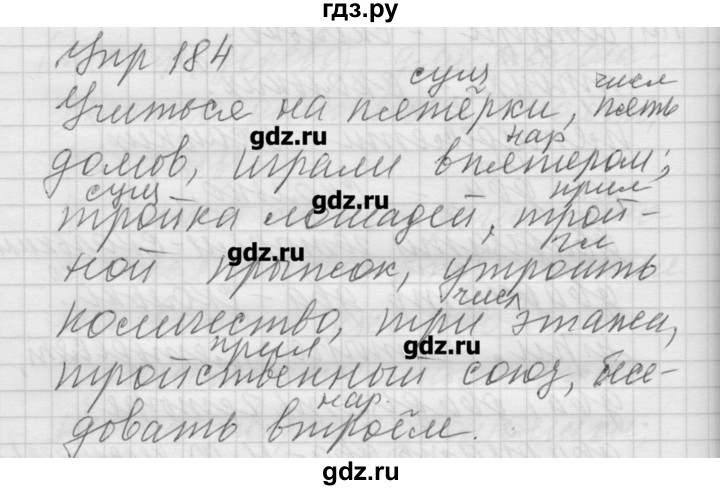 гдз.ру
Упр 184
сущ числ
Учиться на пятёрки, пять
gdz.ru нар
домов, играли впятером;
сущ gdz.ru прил
тройка лошадей, трой-
gdz.ru гл
ной прыжок, утроить
числ
количество, три этажа,
прил gdz.ru
тройственный союз, бесе-
нар.
довать втроём.
gdz.ru